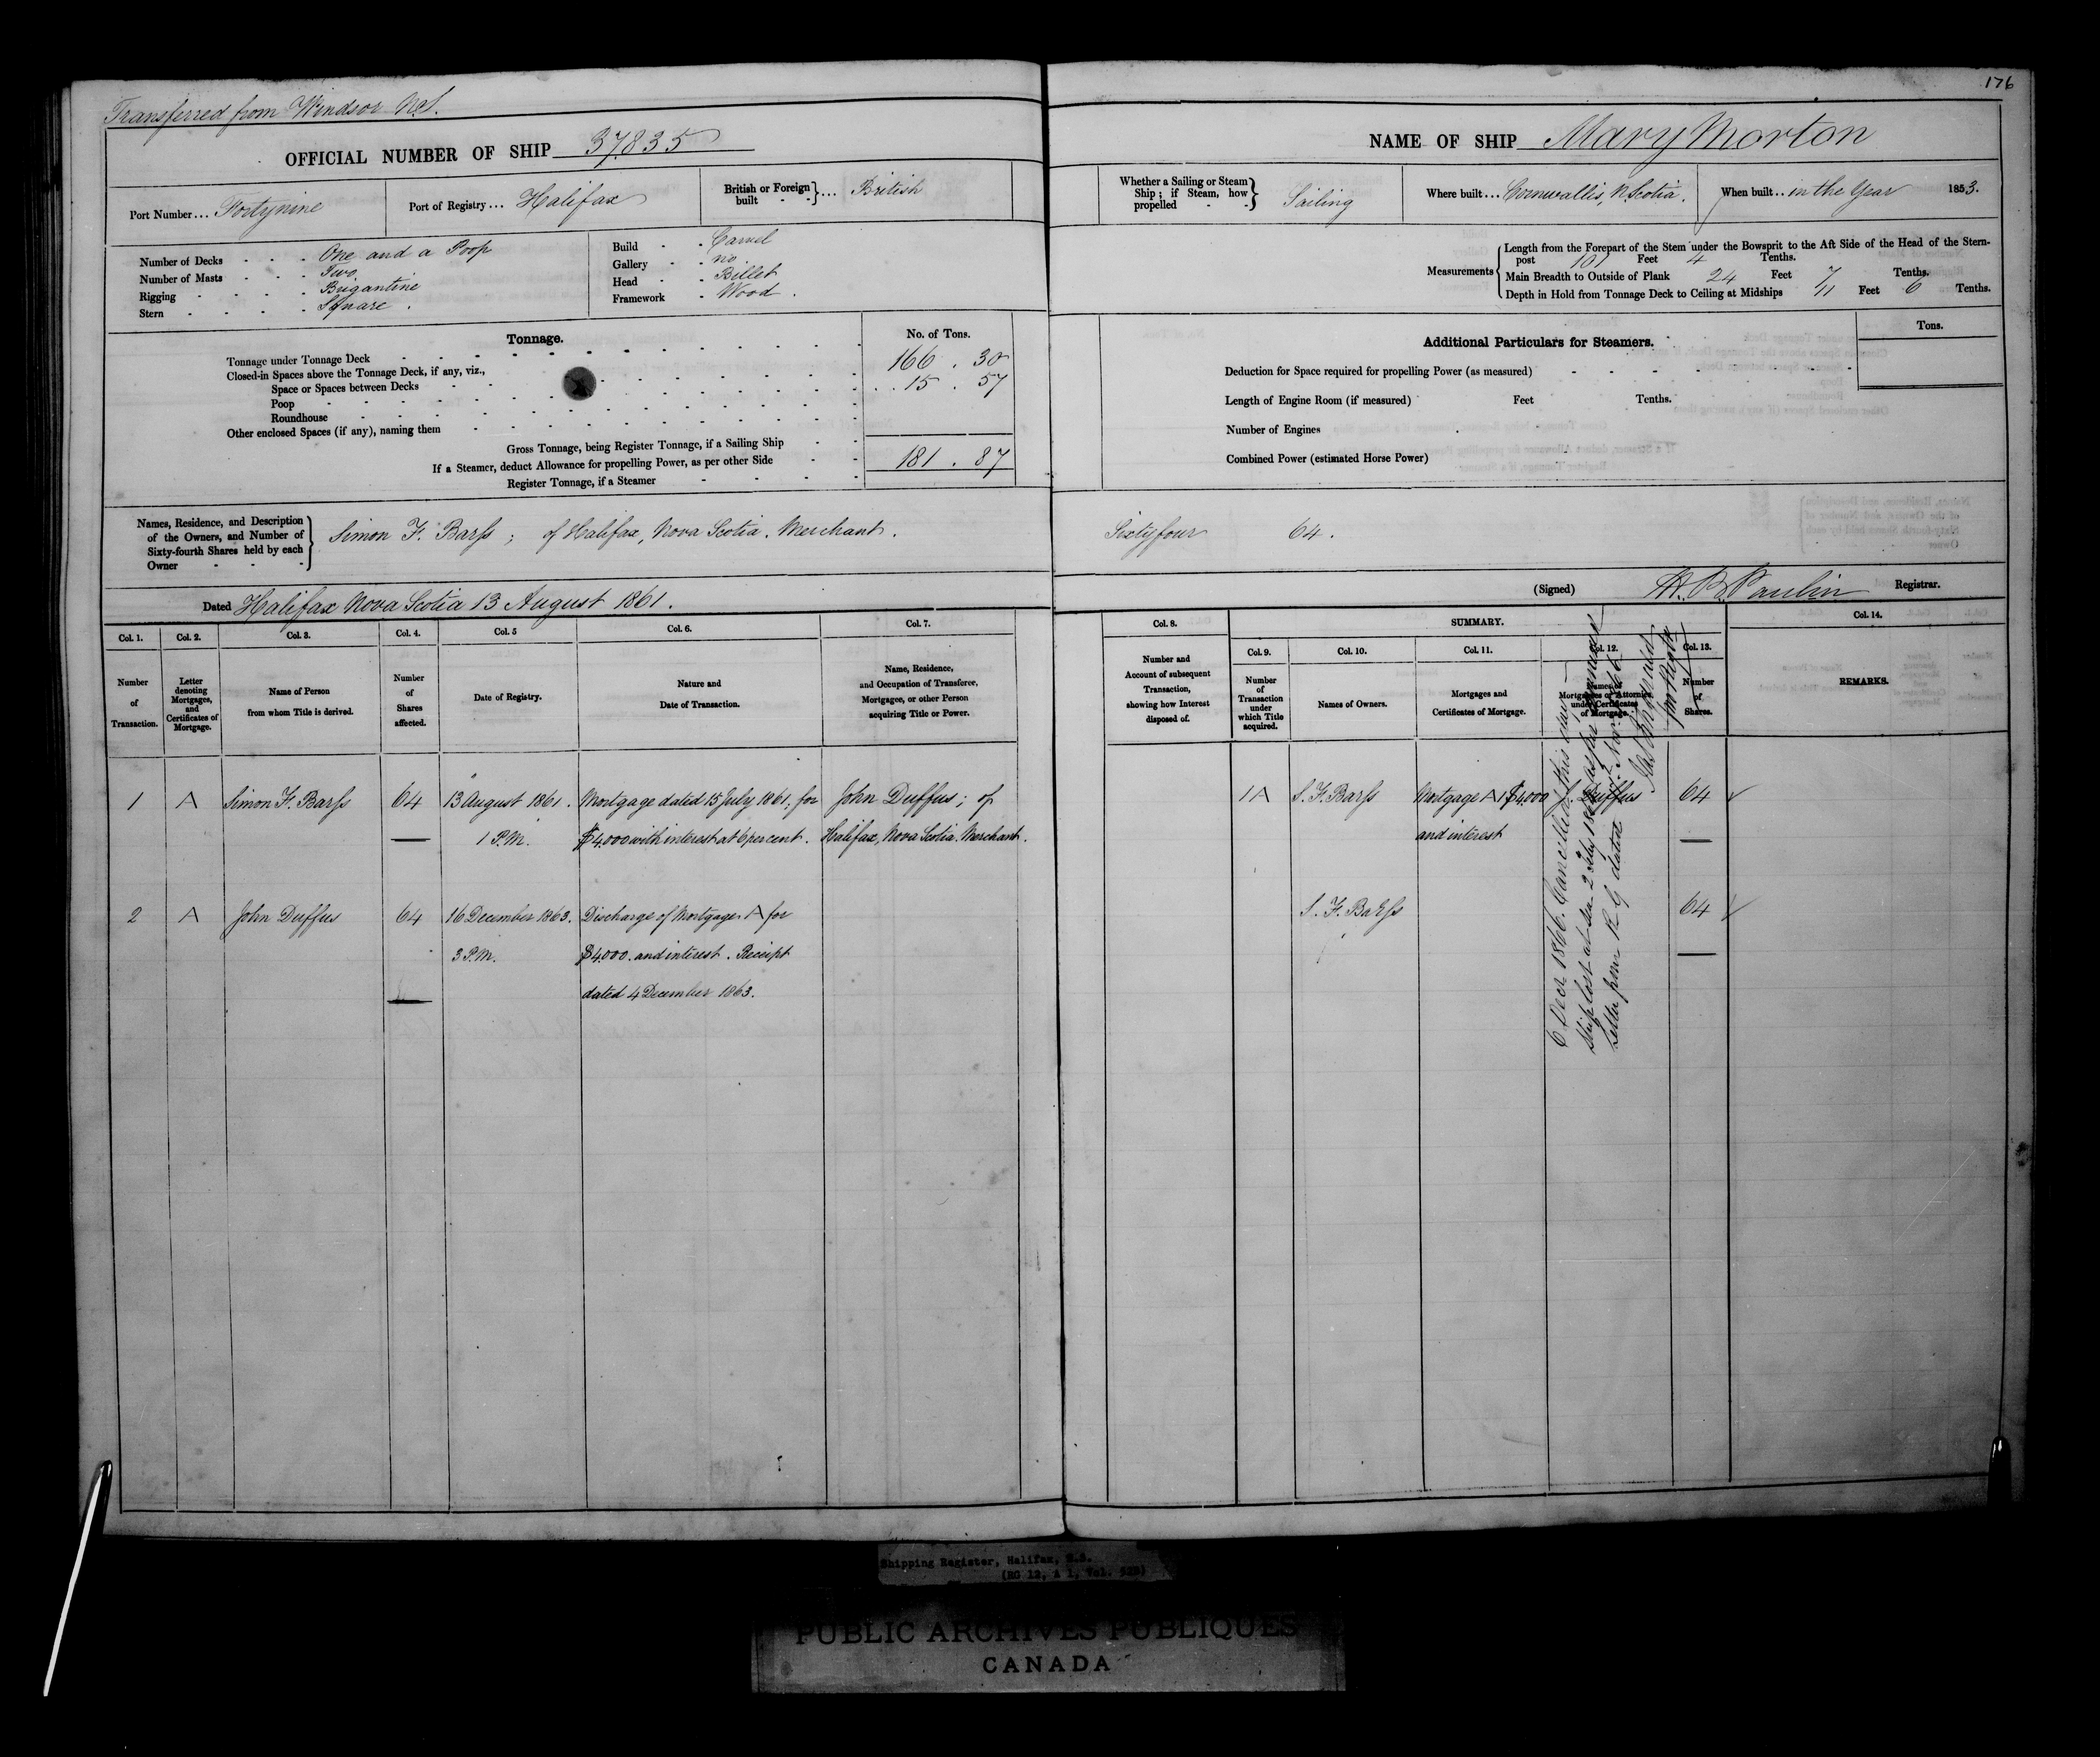 176
Transferred from Windsor N.S.
OFFICIAL NUMBER OF SHIP 37835
NAME OF SHIP Mary Morton
Port Number... Fortynine
Port of Registry... Halifax
British or Foreign built - - }... British
Whether a Sailing or Steam Ship; if Steam, how propelled - - } Sailing
Where built... Cornwallis, N. Scotia.
When built... in the Year 1853.
Number of Decks - - - One and a Poop
Number of Masts - - - Two.
Rigging - - - - Brigantine
Stern - - - - Square.
Build - - Carvel
Gallery - - no.
Head - - Billet
Framework - Wood.
Measurements { Length from the Forepart of the Stem under the Bowsprit to the Aft Side of the Head of the Stern-
post 101 Feet 4 Tenths.
Main Breadth to Outside of Plank 24 Feet 7 Tenths.
Depth in Hold from Tonnage Deck to Ceiling at Midships 11 Feet 6 Tenths.
Tonnage.
No. of Tons.
Tonnage under Tonnage Deck 166 . 30
Closed-in Spaces above the Tonnage Deck, if any, viz.,
Space or Spaces between Decks . . 15 . 57
Poop
Roundhouse
Other enclosed Spaces (if any), naming them
Gross Tonnage, being Register Tonnage, if a Sailing Ship
181 . 87
If a Steamer, deduct Allowance for propelling Power, as per other Side
Register Tonnage, if a Steamer
Additional Particulars for Steamers.
Tons.
Deduction for Space required for propelling Power (as measured)
Length of Engine Room (if measured) Feet Tenths.
Number of Engines
Combined Power (estimated Horse Power)
Names, Residence, and Description
of the Owners, and Number of
Sixty-fourth Shares held by each
Owner - - -
Simon F. Barss ; of Halifax, Nova Scotia. Merchant.
Sixtyfour 64.
Dated Halifax Nova Scotia 13 August 1861.
(Signed) H. B. Paulin Registrar.
Col. 1. Col. 2. Col. 3. Col. 4. Col. 5 Col. 6. Col. 7.
Number of Transaction.
Letter denoting Mortgages, and Certificates of Mortgage.
Name of Person from whom Title is derived.
Number of Shares affected.
Date of Registry.
Nature and Date of Transaction.
Name, Residence, and Occupation of Transferee, Mortgagee, or other Person acquiring Title or Power.
Col. 8.
Number and Account of subsequent Transaction, showing how Interest disposed of.
SUMMARY.
Col. 9. Col. 10. Col. 11. Col. 12. Col. 13.
Number of Transaction under which Title acquired.
Names of Owners.
Mortgages and Certificates of Mortgage.
Names of Mortgagees or Attornies under Certificates of Mortgage.
Number of Shares.
Col. 14.
REMARKS.
1 A Simon F. Barss 64 13 August 1861. Mortgage dated 15 July 1861; for John Duffus; of
1 P.M. $4,000 with interest at 6 per cent. Halifax, Nova Scotia. Merchant.
1A S. F. Barss Mortgage A 1 $4,000 J. Duffus 64
and interest
2 A John Duffus 64 16 December 1863. Discharge of Mortgage A for
3 P.M. $4,000. and interest. Receipt
dated 4 December 1863.
S. F. Barss 64
6 Decr 1866. Cancelled this day
Ship lost at sea 2 July 18 as per
Letter from R. G. dated
Shipping Register, Halifax, N.S.
(RG 12, A 1, Vol. 528)
PUBLIC ARCHIVES PUBLIQUES
CANADA